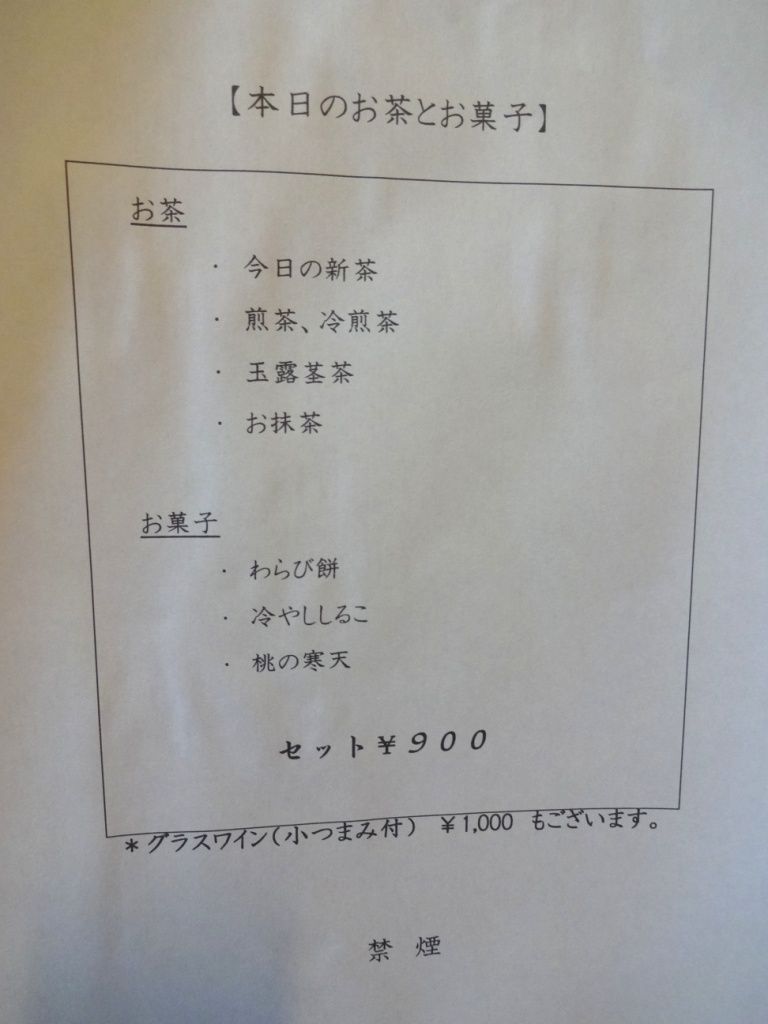 【本日のお茶とお菓子】
お茶
・ 今日の新茶
・ 煎茶、冷煎茶
・ 玉露茎茶
・ お抹茶
お菓子
・ わらび餅
・ 冷やししるこ
・ 桃の寒天
セット￥９００
＊グラスワイン（小つまみ付） ￥1,000 もございます。
禁 煙